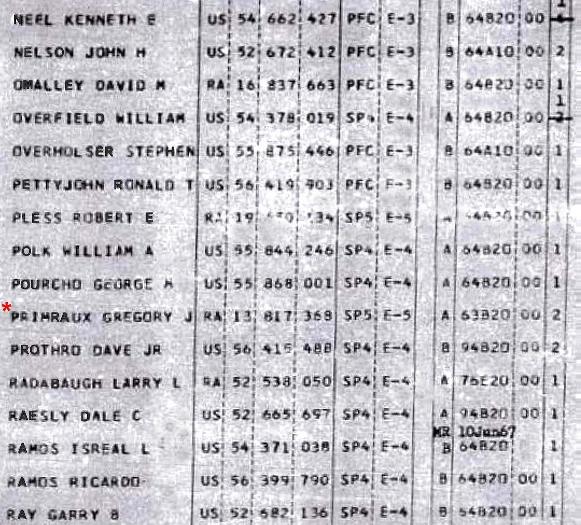 1
NEEL KENNETH E US 54 662 427 PFC E-3 B 64B20 00
NELSON JOHN H US 52 672 412 PFC E-3 B 64A10 00 2
OMALLEY DAVID M RA 16 837 663 PFC E-3 B 64B20 00 1
1
OVERFIELD WILLIAM US 54 378 019 SP4 E-4 A 64B20 00 2
OVERHOLSER STEPHEN US 55 875 446 PFC E-3 B 64A10 00 1
PETTYJOHN RONALD T US 56 419 903 PFC E-3 B 64B20 00 1
PLESS ROBERT E RA 19 SP5 E-5 00 1
POLK WILLIAM A US 55 844 246 SP4 E-4 A 64B20 00 1
POURCHO GEORGE H US 55 868 001 SP4 E-4 A 64B20 00 1
* PRIMRAUX GREGORY J RA 13 817 368 SP5 E-5 A 63B20 00 2
PROTHRO DAVE JR US 56 415 488 SP4 E-4 B 94B20 00 2
RADABAUGH LARRY L RA 52 538 050 SP4 E-4 A 76E20 00 1
RAESLY DALE C US 52 665 697 SP4 E-4 A 94B20 00 1
MR 10Jun67
RAMOS ISREAL L US 54 371 038 SP4 E-4 B 64B20 1
RAMOS RICARDO US 56 399 790 SP4 E-4 B 64B20 00 1
RAY GARRY B US 52 682 136 SP4 E-4 B 64B20 00 1